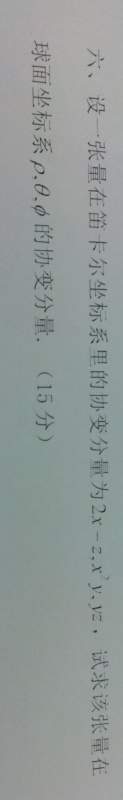 六、设一张量在笛卡尔坐标系里的协变分量为2x-z,x²y,yz，试求该张量在
球面坐标系ρ,θ,ϕ的协变分量.（15分）